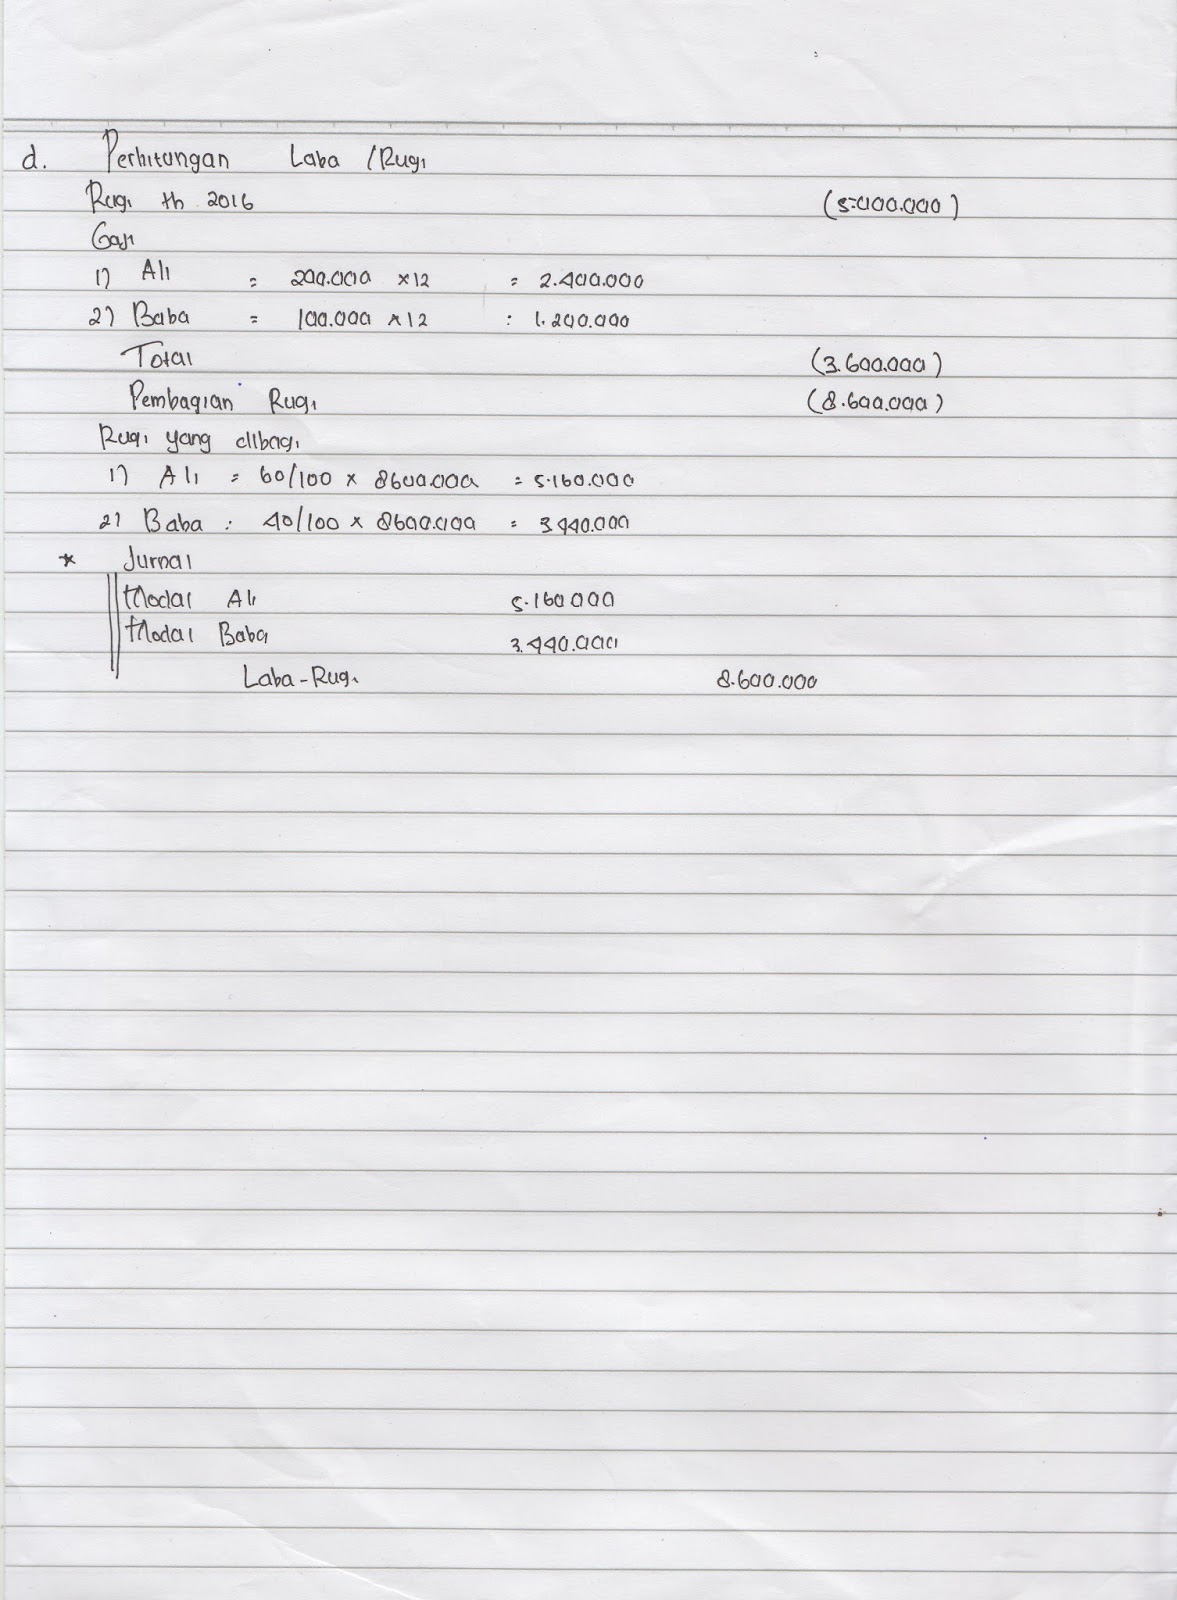 d. Perhitungan Laba / Rugi
Rugi th 2016 (5.000.000)
Gaji
1) Ali = 200.000 × 12 = 2.400.000
2) Baba = 100.000 × 12 : 1.200.000
Total (3.600.000)
Pembagian Rugi (8.600.000)
Rugi yang dibagi
1) Ali = 60/100 × 8600.000 = 5.160.000
2) Baba : 40/100 × 8600.000 = 3.440.000
* Jurnal
Modal Ali 5.160.000
Modal Baba 3.440.000
Laba-Rugi 8.600.000